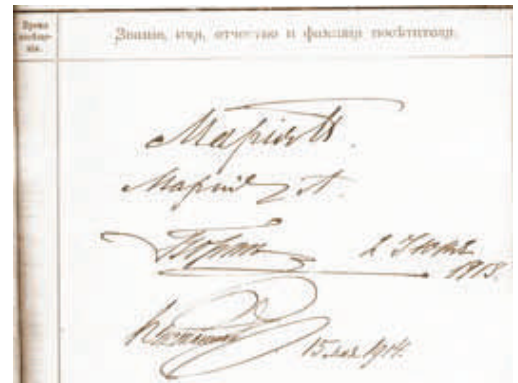 Время
посѣще-
нія.
Званіе, имя, отчество и фамилія посѣтителя.
Марія
Марія
Борис 2
1913.
15 мая 1914.